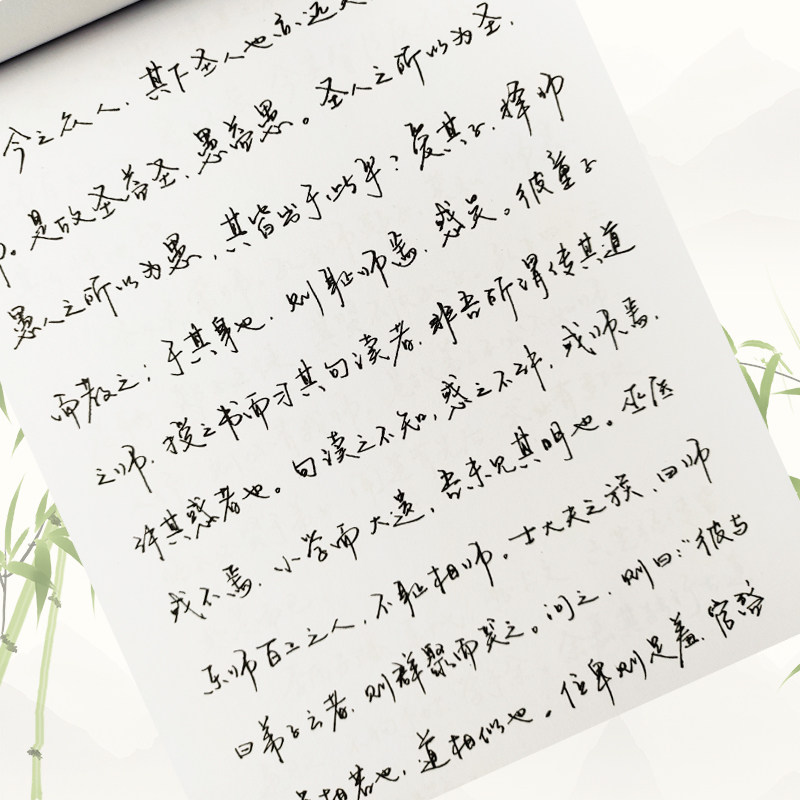 今之众人,其下圣人也亦远
。是故圣益圣,愚益愚。圣人之所以为圣,
愚人之所以为愚,其皆出于此乎?爱其子,择师
而教之;于其身也,则耻师焉,惑矣。彼童子
之师,授之书而习其句读者,非吾所谓传其道
解其惑者也。句读之不知,惑之不解,或师焉,
或不焉,小学而大遗,吾未见其明也。巫医
乐师百工之人,不耻相师。士大夫之族,曰师
曰弟子云者,则群聚而笑之。问之,则曰:“彼与
相若也,道相似也。位卑则足羞,官盛